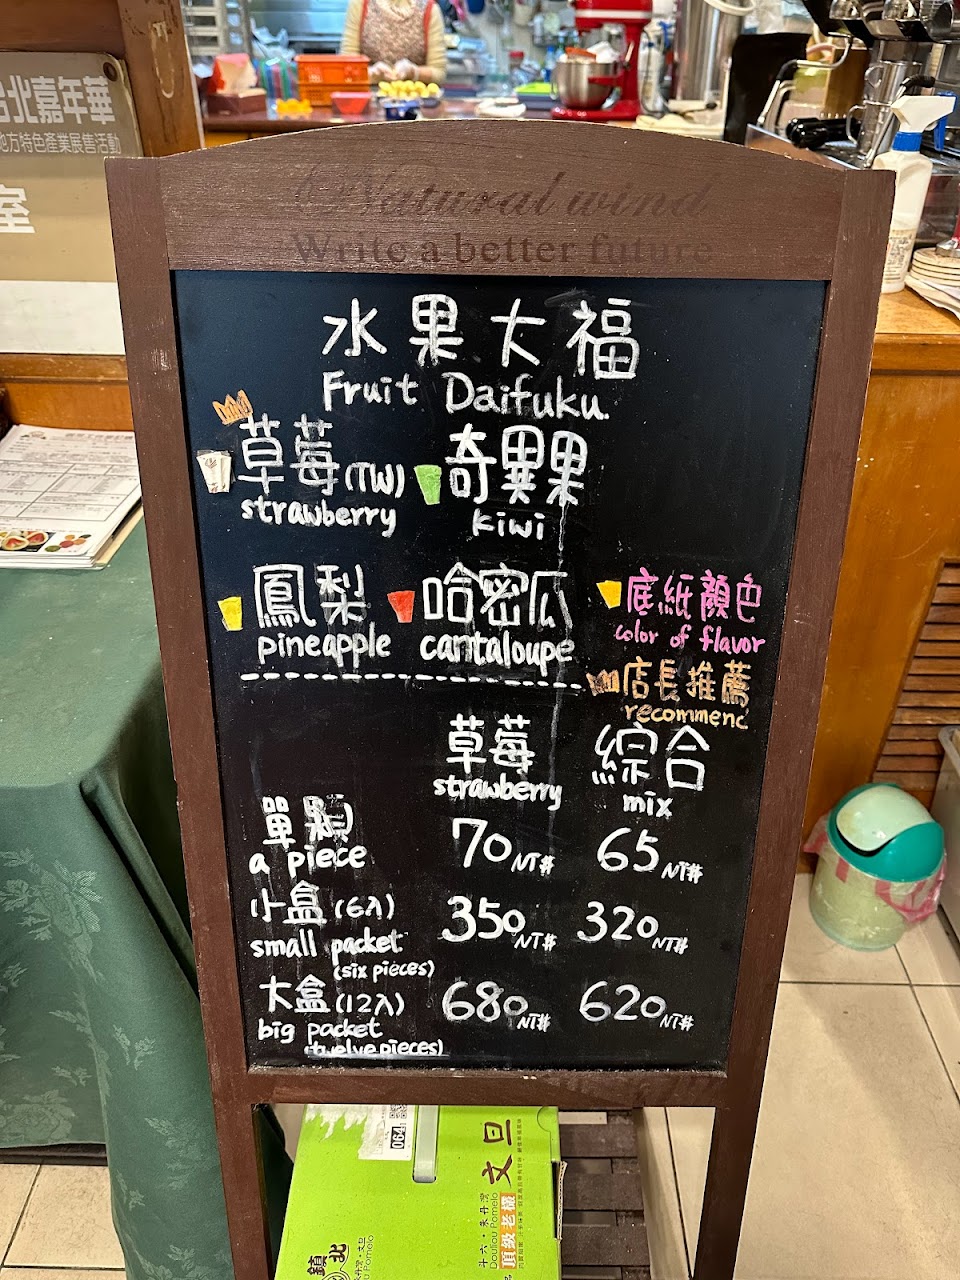 台北嘉年華
地方特色產業展售活動
室
Natural wind
Write a better future
水果大福
Fruit Daifuku.
草莓(TW) 奇異果
strawberry kiwi
鳳梨 哈密瓜 底紙顏色
pineapple cantaloupe color of flavor
店長推薦
recommend
草莓 綜合
strawberry mix
單顆 70 NT# 65 NT#
a piece
小盒(6入) 350 NT# 320 NT#
small packet
(six pieces)
大盒(12入) 680 NT# 620 NT#
big packet
(twelve pieces)
064
文旦
斗六・朱丹灣
Douliou Pomelo
頂級老欉
鎮北
朱丹灣・文旦